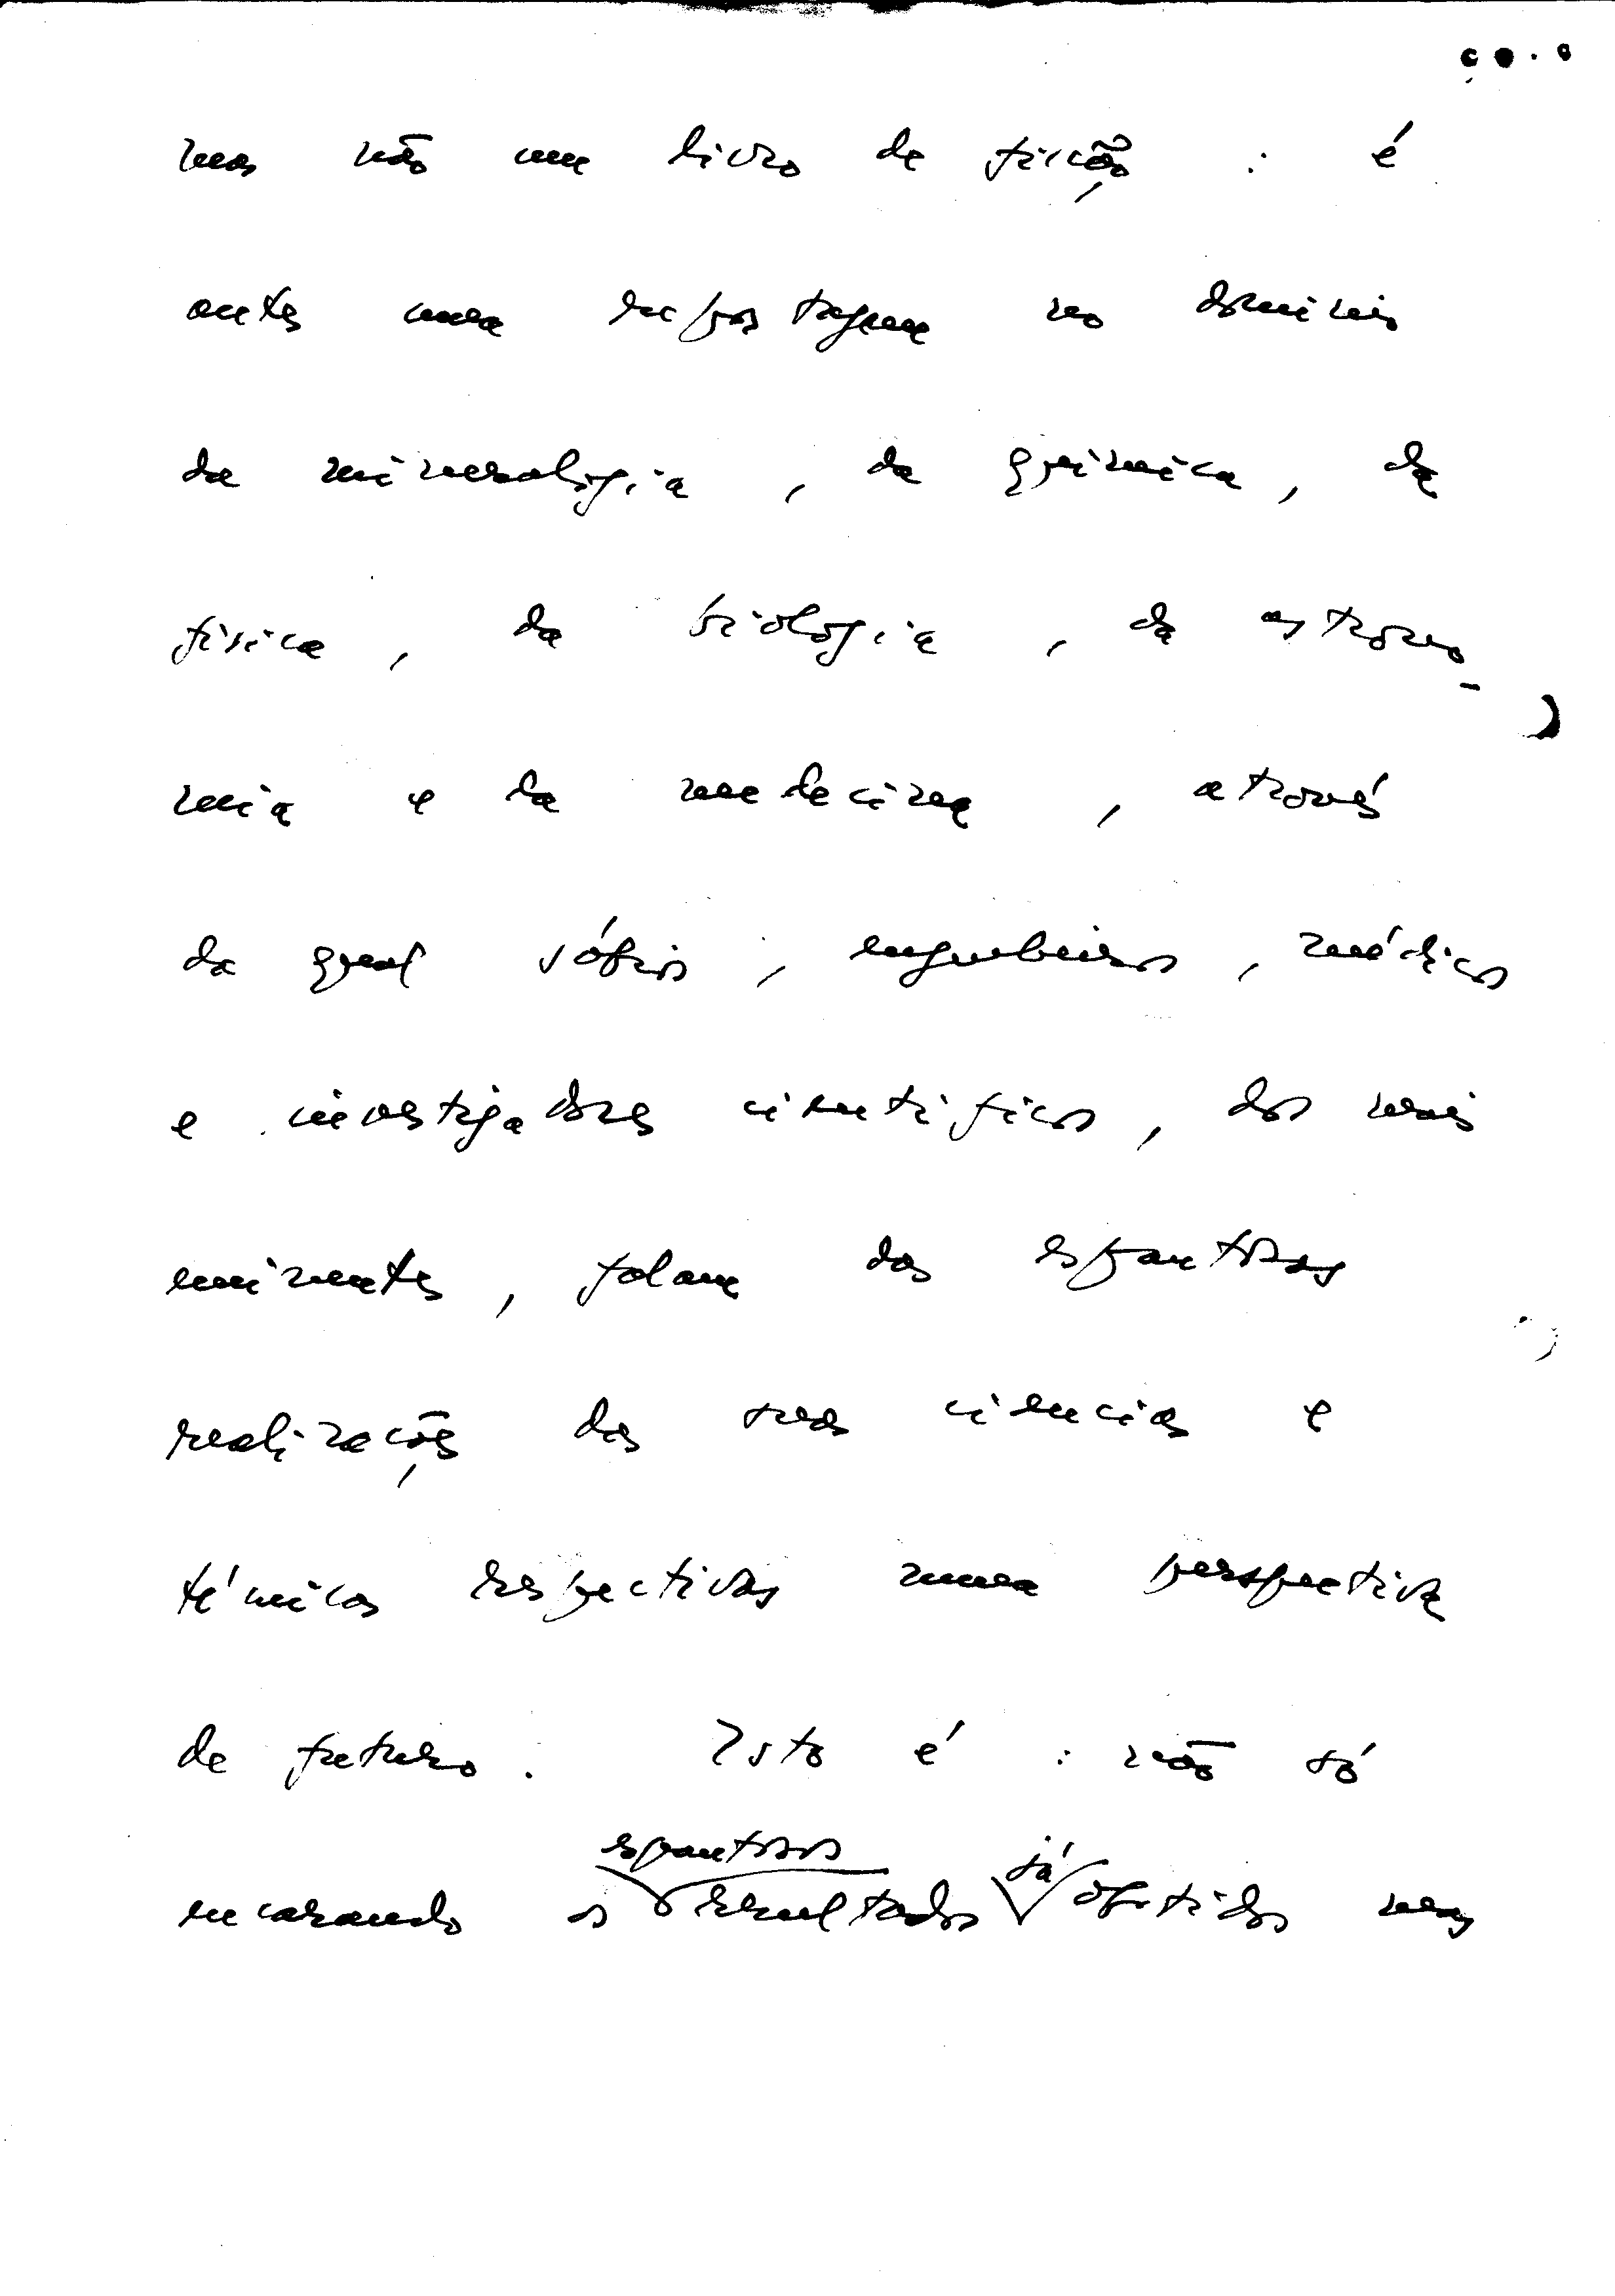 mas não um livro de ficção : é
antes uma reportagem no domínio
da mineralogia , da química , da
física , da biologia , da astrono-
mia e da medecina , através
da qual sábios , engenheiros , médicos
e investigadores cientificos , dos mais
eminentes , falam das espantosas
realizações das suas ciencias e
técnicas respectivas numa perspectiva
de futuro . Isto é : não só
espantosos já
encarando os resultados obtidos mas